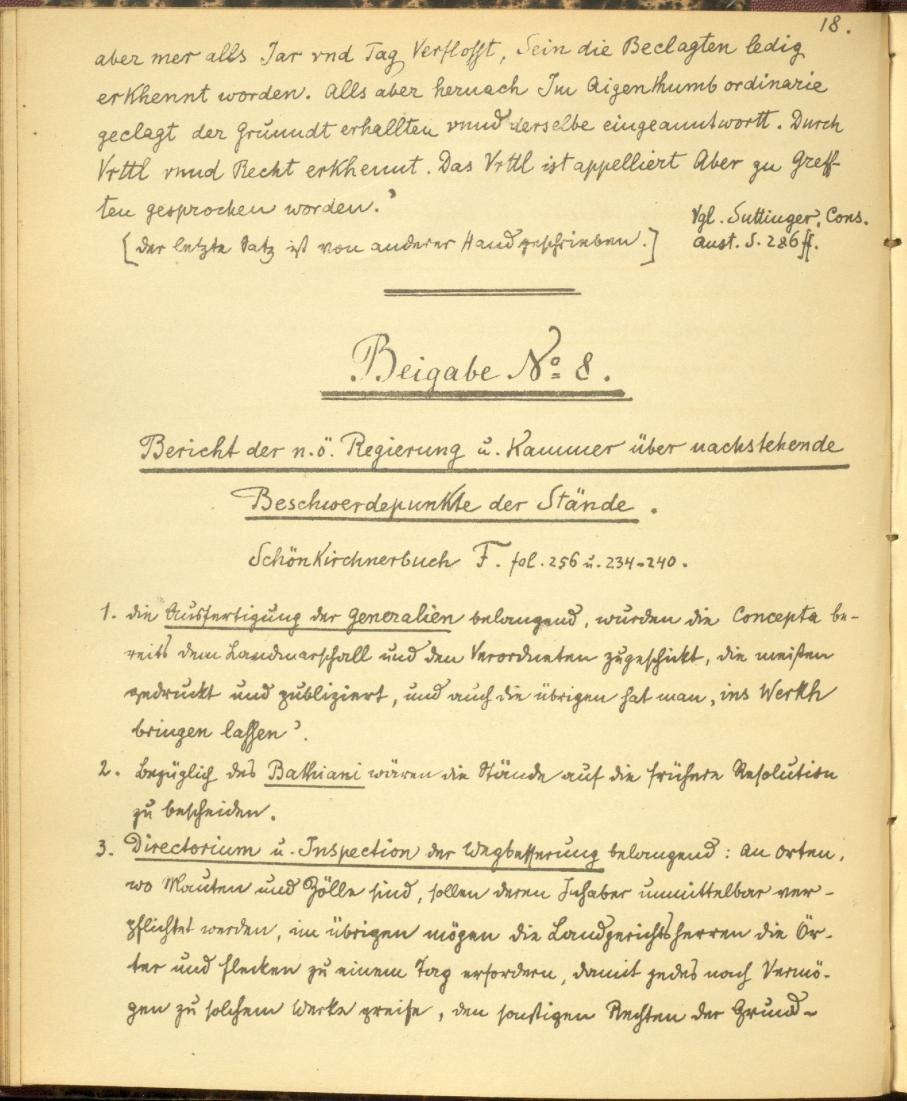 18.
aber mer alls Jar vnd Tag Verflosst, Sein die Beclagten ledig
erkhennt worden. Alls aber hernach Im Aigenthumb ordinarie
geclagt der Grünndt erhallten vnnd derselbe eingeanntwortt. Durch
Vrttl vnnd Recht erkhennt. Das Vrttl ist appelliert Aber zu Greff-
ten gesprochen worden.'
[Der letzte Satz ist von anderer Hand geschrieben.]
Vgl. Suttinger, Cons.
aust. S. 286 ff.
Beigabe No 8.
Bericht der n.ö. Regierung u. Kammer über nachstehende
Beschwerdepunkte der Stände.
Schönkirchnerbuch F. fol. 256 u. 234-240.
1. Die Ausfertigung der Generalien belangend, wurden die Concepta be-
reits dem Landmarschall und den Verordneten zugeschickt, die meisten
gedruckt und publiziert, und auch die übrigen hat man, ins Werkh
bringen lassen'.
2. Bezüglich des Bathiani wären die Stände auf die frühere Resolution
zu bescheiden.
3. Directorium u. Inspection der Wegbesserung belangend: an Orten,
wo Mauten und Zölle sind, sollen deren Inhaber unmittelbar ver-
pflichtet werden, im übrigen mögen die Landgerichtsherren die Ör-
ter und Flecken zu einem Tag erfordern, damit jedes nach Vermö-
gen zu solchem Werke greife, den sonstigen Rechten der Grund-